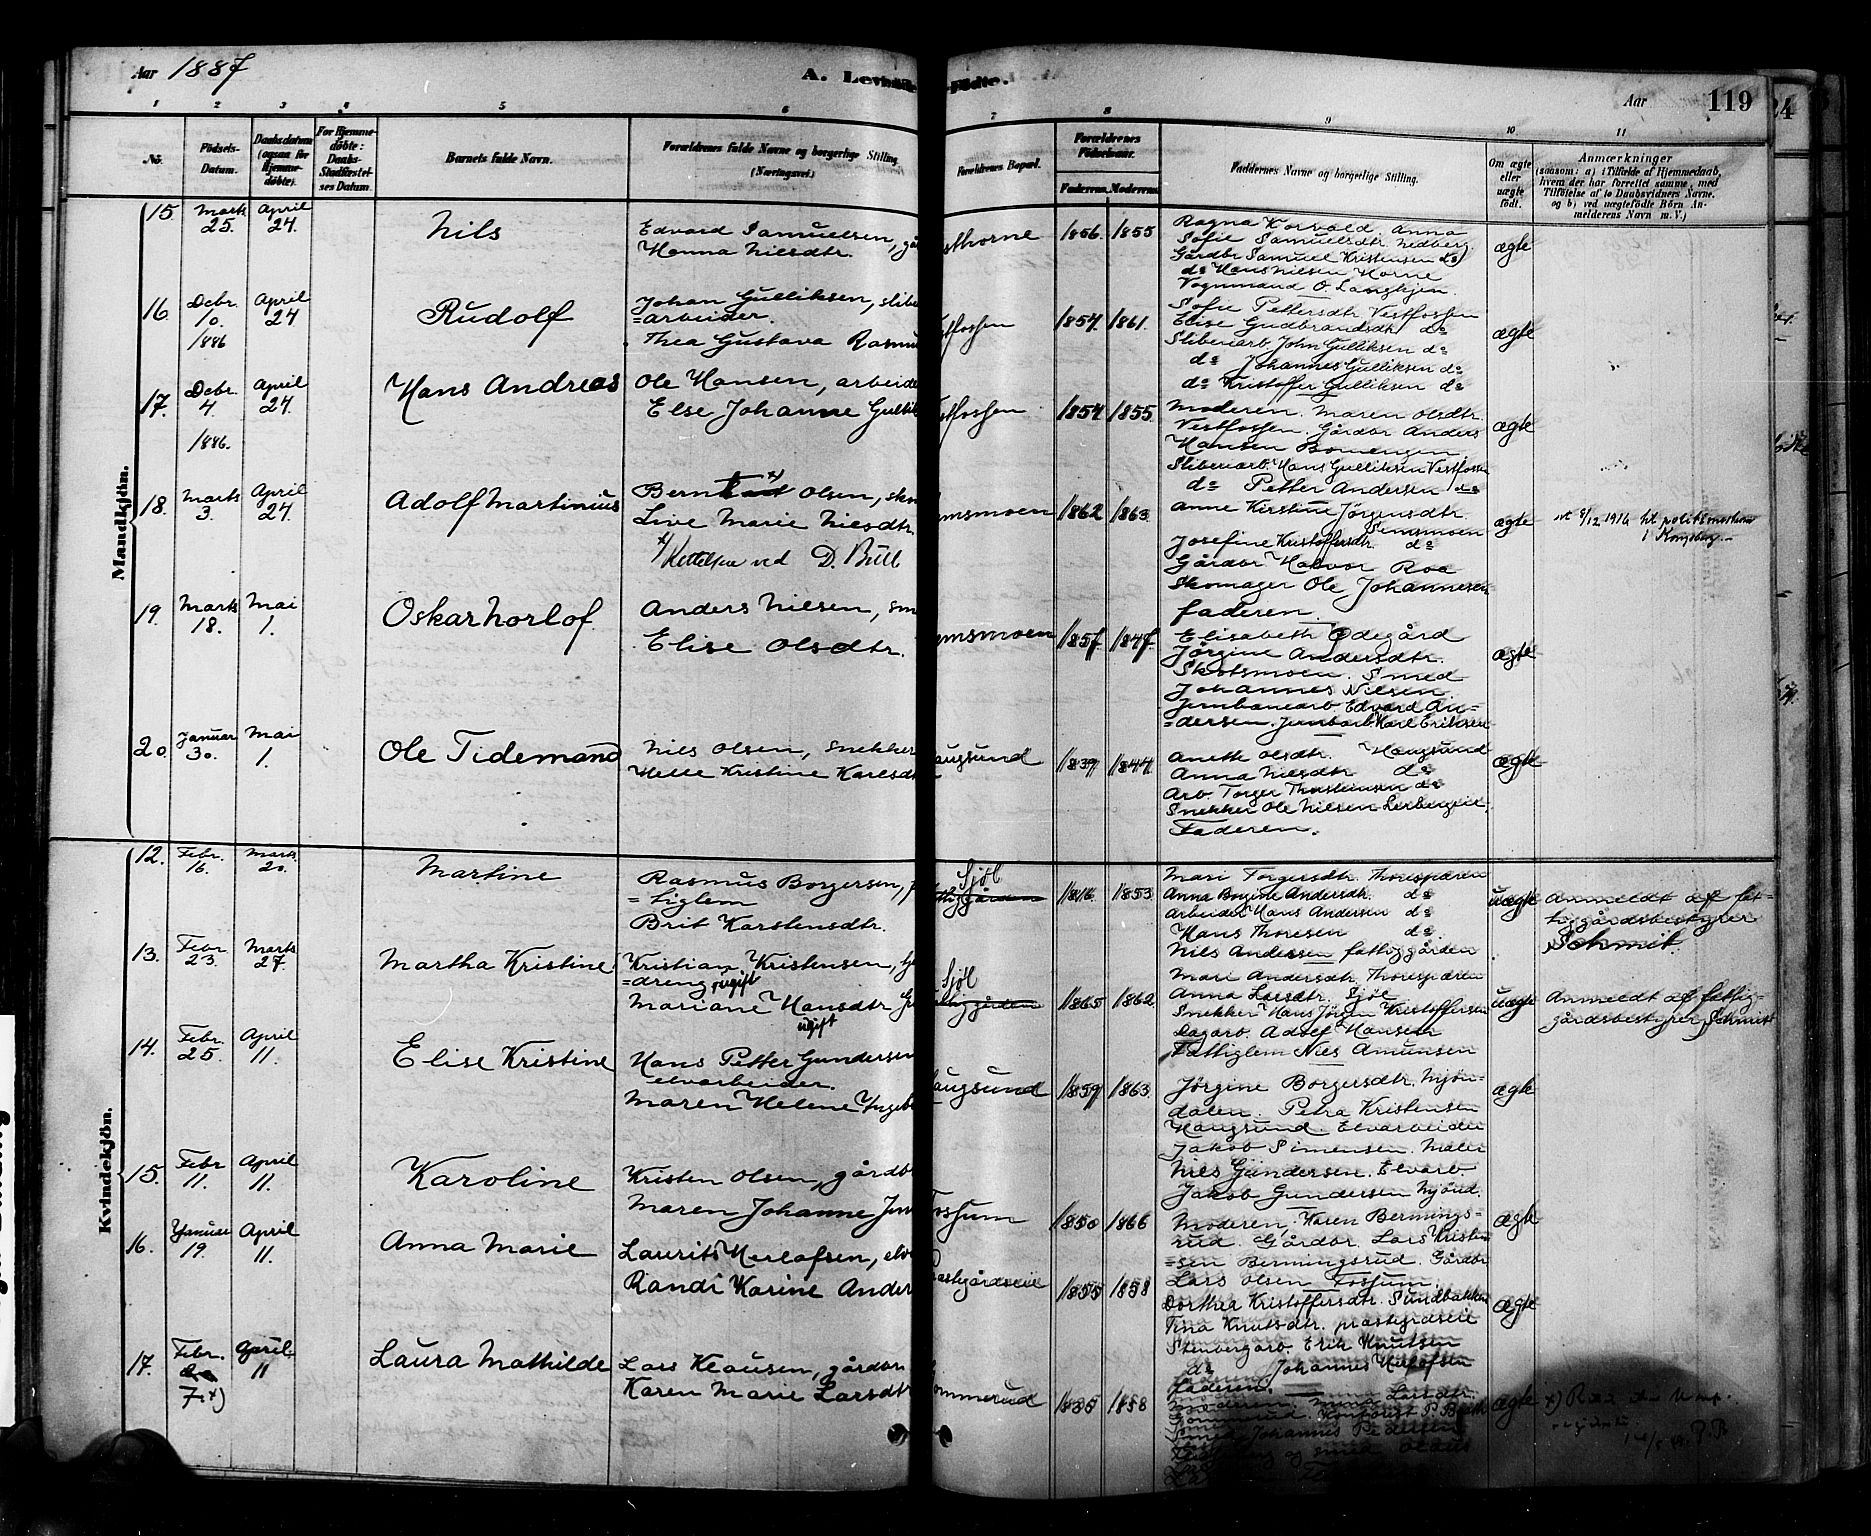 Aar 1887
A. Levnde
Fødte.
Aar
119
24
1 2 3 4 5 6 7 8 9 10 11
No.
Födsels-Datum.
Daabsdatum (ogsaa for Hjemmedöbte).
For Hjemmedöbte: Daabs-Stadfæstelses Datum.
Barnets fulde Navn.
Forældrenes fulde Navne og borgerlige Stilling (Næringsvei.)
Forældrenes Bopæl.
Forældrenes Födselsaar.
Faderens. Moderens.
Faddernes Navne og borgerlige Stilling.
Om ægte eller uægte födt.
Anmærkninger
(saasom: a) i Tilfælde af Hjemmedaab,
hvem der har forrettet samme, med
Tilföielse af to Daabsvidners Navne.
og b) ved uægtefödte Börn Anmelderens Navn m. V.)
Mandkjön.
15. Marts 25. April 24. Nils
Edvard Samuelsen,
Hanna Nielsdtr.
1856. 1855
Ragna Korvald. Anna
Sofie Samuelsdtr. Nedberg.
Gårdbr Samuel Kristensen do
do Hans Nielsen Horne
Vognmand O. Langkjen.
ægte
16 Decbr. 10. 1886 April 24 Rudolf
Johan Gulliksen, slibe
=arbeider.
Thea Gustava Rasmu
1854. 1861.
Sofie Pettersdtr Vestfossen
Elise Gudbrandsdtr do
Sliberiarb. John Gulliksen do
do Johannes Gulliksen do
do Kristoffer Gulliksen do
ægte
17. Decbr. 4. 1886. April 24. Hans Andreas
Ole Hansen, arbeide
Else Johanne Gullik
1854 1855
Moderen. Maren Olsdtr.
Vestfossen. Gårdbr Anders
Hansen Bomengen
Sliberiarb. Hans Gulliksen Vestfossen
do Petter Andersen do
ægte
18. Marts 3. April 24 Adolf Martinius
Olsen,
Live Marie Nielsdtr.
x) Kettelsen ved D. Bull
msmoen 1862 1863
Anne Kirstine Jørgensdtr
Semsmoen
Josefine Kristoffersdtr. do
Gårdbr Halvor Roa
Skomager Ole Johannesen
faderen.
ægte
8/12 1916 til politimesteren
i Kongsberg
19. Marts 18. Mai 1. Oskar Norlof
Anders Nielsen, sm
Elise Olsdtr.
msmoen 1857. 1847.
Elisabeth Ødegård
Jørgine Andersdtr.
Skotsmoen. Smed
Johannes Nilsen
Jernbanearb. Edvard An-
=dersen. Jernbarb. Karl Eriksen
ægte
20. Januar 30. Mai 1. Ole Tidemand
Nils Olsen, snekker
Helle Kristine Karlsdt
augsund 1839 1844
Aneth Olsdtr. Haugsund
Anna Nielsdtr do
Arb. Torger Thorsteinsen do
Snekker Ole Nilsen Lerbergeie.
Faderen.
ægte
Kvindekjön.
12. Febr. 16. Marts 20. Martine
Rasmus Borgersen,
=tiglem
Brit Karstensdtr.
Sjøl
1816 1853
Mari Torgersdtr. Thorespæren
Anna Borgine Andersdtr. do
arbeider Hans Andersen do
Hans Thoresen do
Nils Andersen fattiggården
uægte
Anmeldt af fat-
tiggårdsbestyrer
Schmit.
13. Febr 23. Marts 27. Martha Kristine
Kristian Kristensen,
=dreng, ugift
Mariane Hansdtr
ugift
Sjøl
1865 1862
Mari Andersdtr. Thorespæren
Anna Larsdtr. Sjøl
Snekker Hans Jörgen Kristoffersen
Dagarb. Adolf Hansen
Fattiglem Niels Amunsen
uægte
Anmeldt af fattig-
gårdsbestyrer Schmit
14. Febr. 25. April 11. Elise Kristine
Hans Petter Gundersen
elvarbeider.
Maren Helene Ingeb
augsund 1859 1863.
Jørgine Borgersdtr. Mjøn-
dalen. Petra Kristensen
Haugsund. Elvarbeider
Jakob Simensen. Maler
Niels Gundersen. Elvarb
Jakob Gundersen Mjønd.
ægte
15. Febr 11. April 11. Karoline
Kristen Olsen, gårdb
Maren Johanne
Fossum 1850 1866
Moderen. Karen Bermings-
rud. Gårdbr. Lars Kristen
=sen Bermingsrud. Gårdbr
Lars Olsen Fossum.
ægte
16. Januar 19. April 11. Anna Marie
Laurits Herlofsen, elv
Randi Karine Ander
1855 1858
Dorthea Kristoffersdtr. Sundbakken
Tina Knutsdtr. præstegrdseie
Stenbergarb. Erik Knutsen
do Johannes Herlofsen
faderen.
ægte
17. Febr. 7. x) April 11 Laura Mathilde
Lars Klausen, gårdbr
Karen Marie Larsdt
ommerud 1835 1858
Moderen. Larsdtr.
Gommerud.
Smed Johannes Pedersen
ægte
P.B